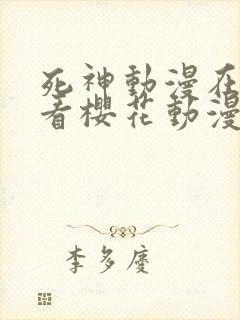 死神動漫在
看櫻花動漫
李多慶